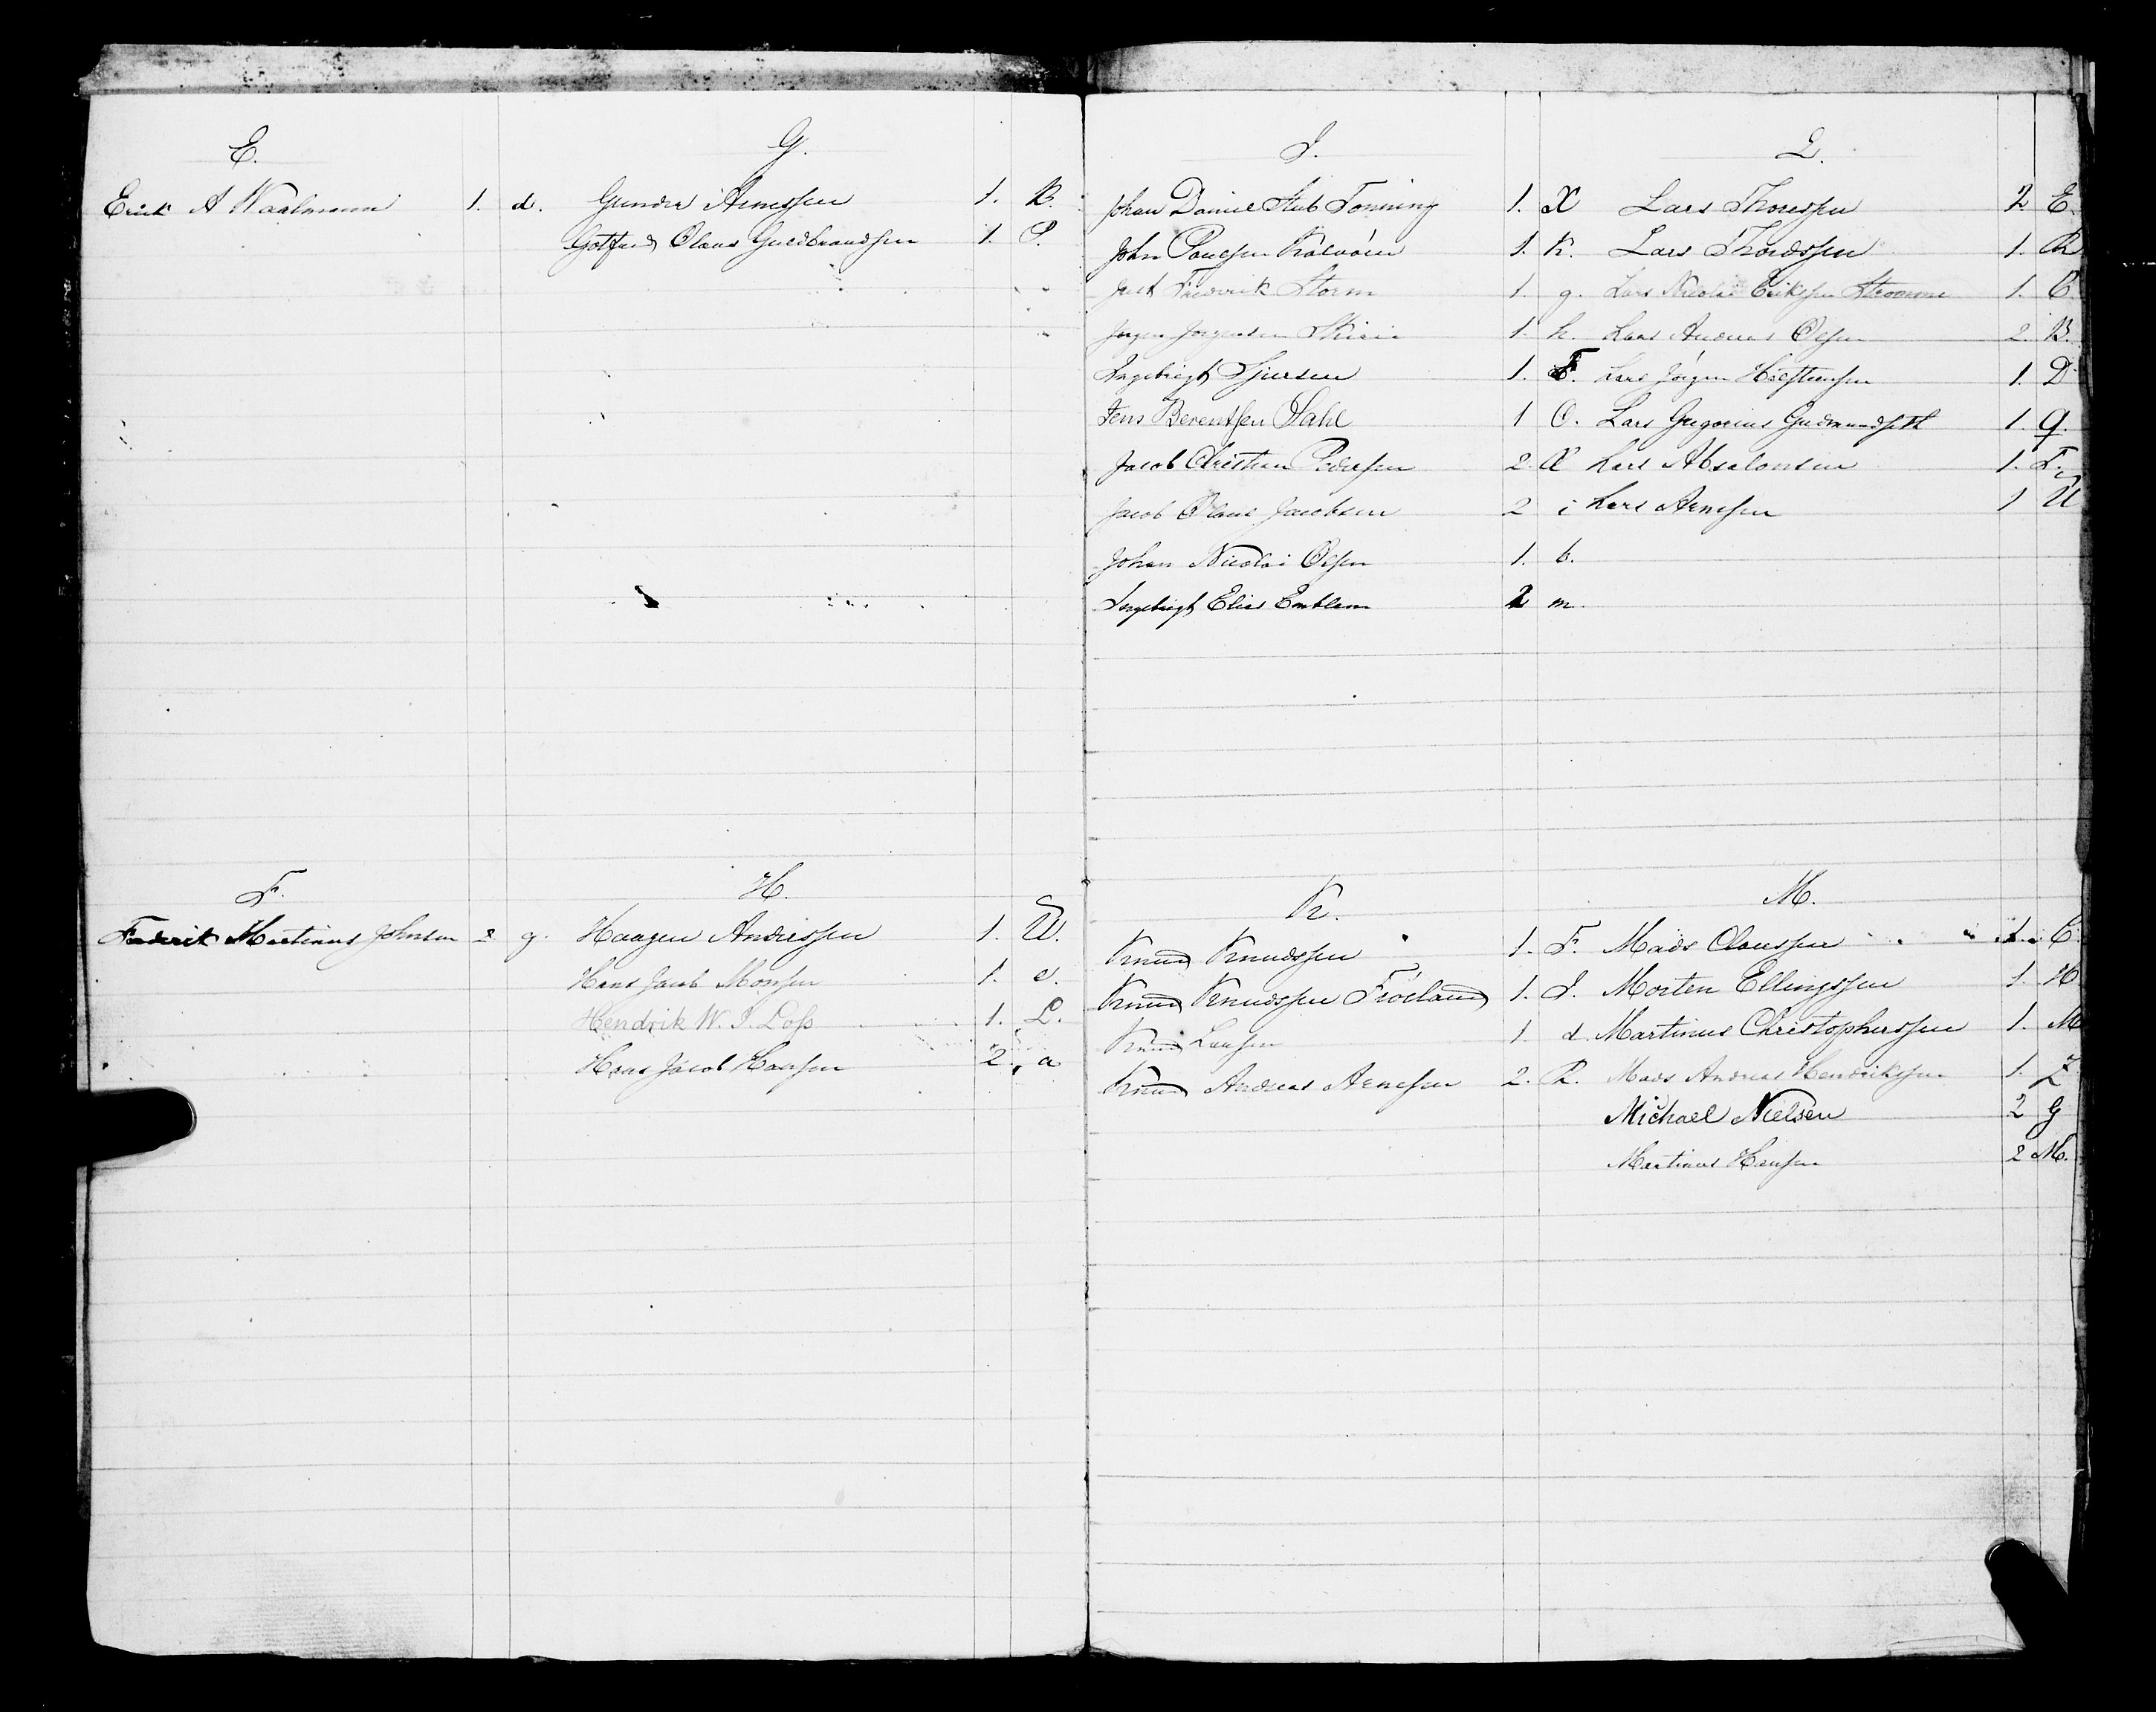 E.
Erick A Waalmann 1. d.
F.
Frederik Martinus Johnsen 2 g.
G.
Gunder Arnessen 1. B.
Gotfred Olaus Guldbrandsen 1. P.
H.
Haagen Andressen 1. U.
Hans Jacob Monsen 1. e.
Hendrik W. I. Loss 1. L.
Hans Jacob Hansen 2. a
I.
Johan Daniel Stub Tonning 1. X
John Poulsen 1. K.
Just Fredrik Storm 1. g.
Jørgen Jørgensen 1. h.
Ingebrigt Sjursen 1. F.
Jens Berentsen Dahl 1 O.
Jacob Christian Pedersen 2. Æ
Jacob Olaus Jacobsen 2 i
Johan Nicolai Olsen 1. b.
Ingebrigt Elias Emblem 2 m.
K.
Knud Knudssen 1. F.
Knud Knudssen Fröland 1. I.
Knud Larsen 1. d.
Knud Andreas Arnesen 2. R.
L.
Lars Thoressen 2. E.
Lars Thordssen 1. R
Lars Nicolai Eriksen Strømme 1. C.
Lars Andreas Olsen 2. B.
Lars Jörgen 1. D
Lars Gregorius Gudmundseth 1. q.
Lars Absalonsen 1. T.
Lars Arnesen 1 U
M.
Mads Claussen 1. C.
Morten Ellingssen 1. H
Martinus Christophersen 1. M
Mads Andreas Hendriksen 1. Z
Michael Nielsen 2 G
Martinus Hansen 2 M.